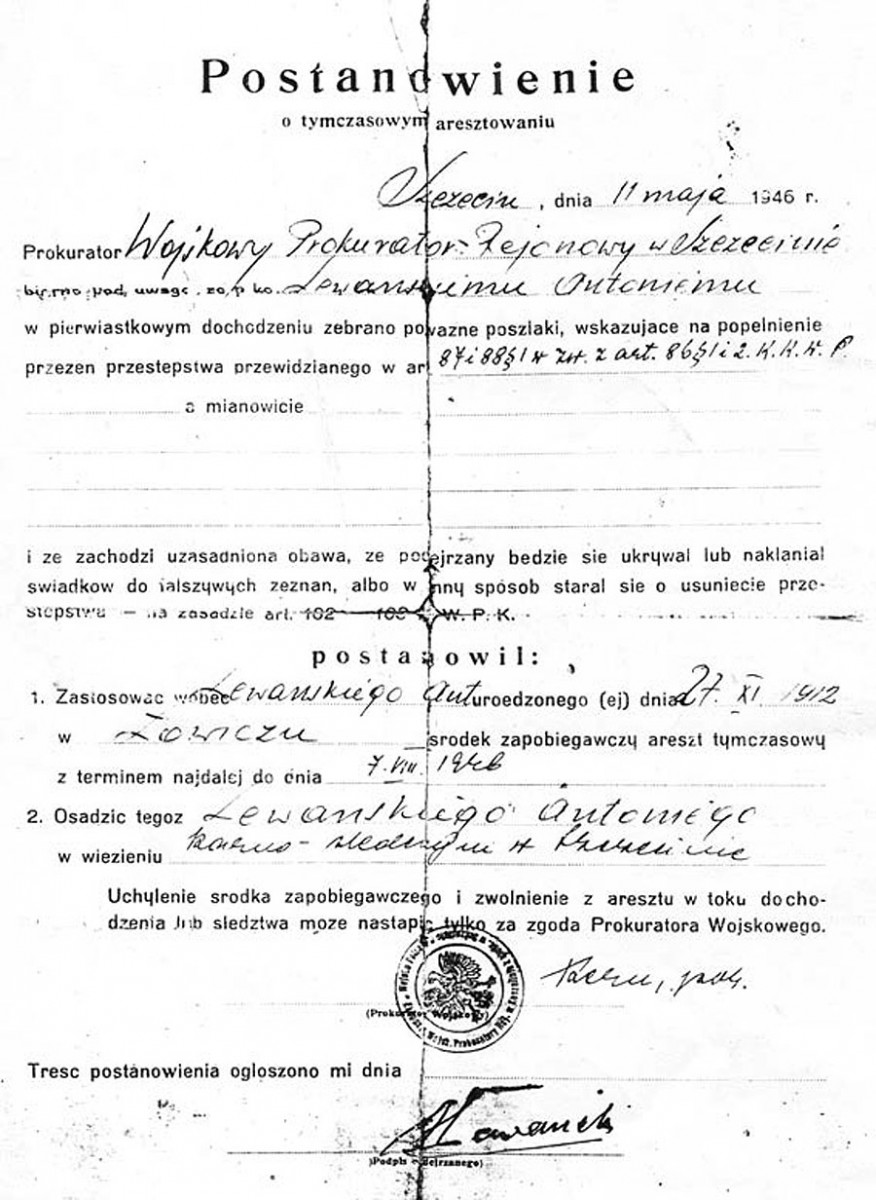 Postanowienie
o tymczasowym aresztowaniu
Szczecin, dnia 11 maja 1946 r.
Prokurator Wojskowy Prokurator Rejonowy w Szczecinie
biorac pod uwagę, ze p ko. Lewanskiemu Antoniemu
w pierwiastkowym dochodzeniu zebrano powazne poszlaki, wskazujace na popelnienie
przezen przestepstwa przewidzianego w art 87 i 88 § 1 w zw. z art. 86 § 1 i 2. K.K.W.P.
a mianowicie
i ze zachodzi uzasadniona obawa, ze podejrzany bedzie sie ukrywal lub naklanial
swiadkow do falszywych zeznan, albo w inny sposob staral sie o usuniecie prze-
stepstwa – na zasadzie art. 102 103 W. P. K.
postanowil:
1. Zastosowac wobec Lewanskiego Ant uroedzonego (ej) dnia 27. XI. 1912
w Łowiczu srodek zapobiegawczy areszt tymczasowy
z terminem najdalej do dnia 7. VIII. 1946
2. Osadzic tegoz Lewanskiego Antoniego
w wiezieniu karno-sledczym w Szczecinie
Uchylenie srodka zapobiegawczego i zwolnienie z aresztu w toku docho-
dzenia lub sledztwa moze nastapic tylko za zgoda Prokuratora Wojskowego.
(Prokurator Wojskowy)
Tresc postanowienia ogloszono mi dnia
ALewanski
(Podpis podejrzanego)